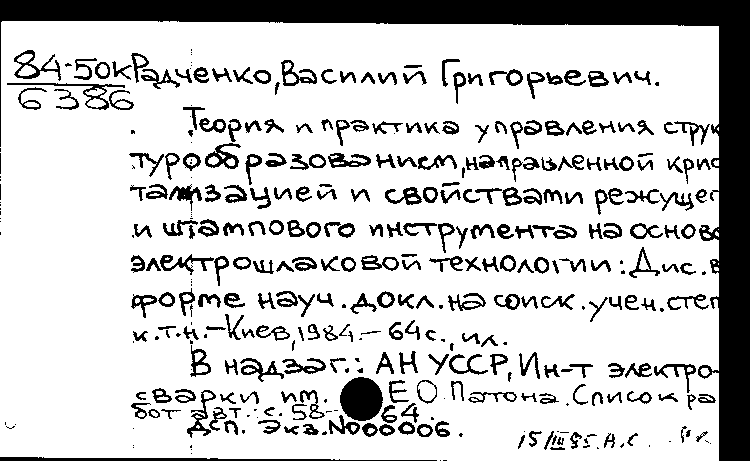 84-50к Радченко, Василий Григорьевич.
6386
Теория и практика управления струк
турообразованием, направленной крис
тализацией и свойствами режущег
и штампового инструмента на основе
электрошлаковой технологии: Дис. в
форме науч. докл. на соиск. учен. степ
к.т.н. - Киев, 1984. - 64 с., ил.
В надзаг.: АН УССР, Ин-т электро-
сварки им. Е О Патона. Список ра
бот авт.: с. 58- 64.
ДСП. Экз. N000006.
15/III 85. А.С.